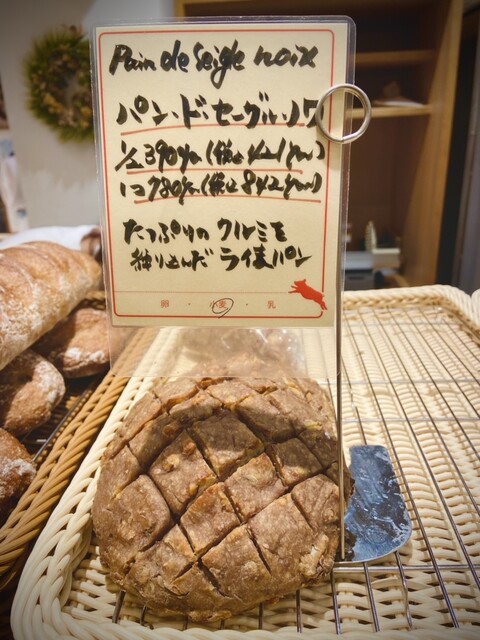 Pain de Seigle noix
パン・ド・セーグル・ノワ
1/2 390yen(税込421yen)
1コ 780yen(税込842yen)
たっぷりの クルミを
練り込んだ ライ麦パン
卵 ・ 小麦 ・ 乳